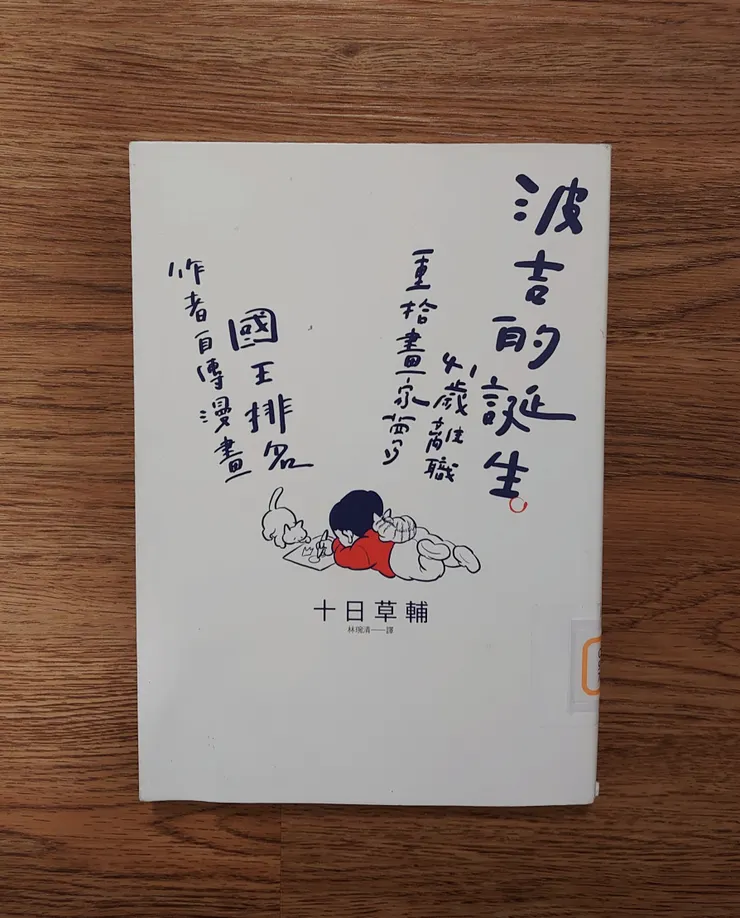 波吉的誕生。
41歲離職
重拾畫家夢
國王排名
作者自傳漫畫
十日草輔
林琬清——譯